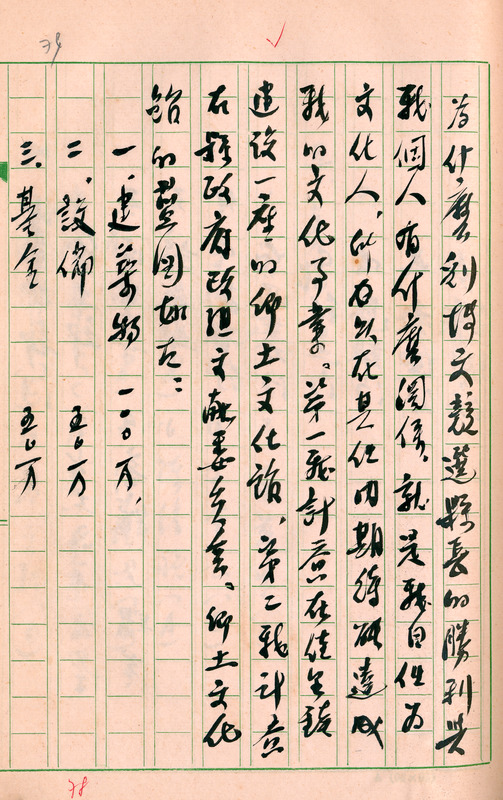 為什麼劉博文競選縣長的勝利與
我個人有什麼関係，就是我自任為
文化人，所以在其任內期待能達成
我的文化事業。第一我計畫在佳里鎮
建設一座的鄉土文化館，第二我計畫
在縣政府改組文献委員会。鄉土文化
館的藍図如左：
一、建築物 一〇〇万，
二、設備 五〇万
三、基金 五〇万
78